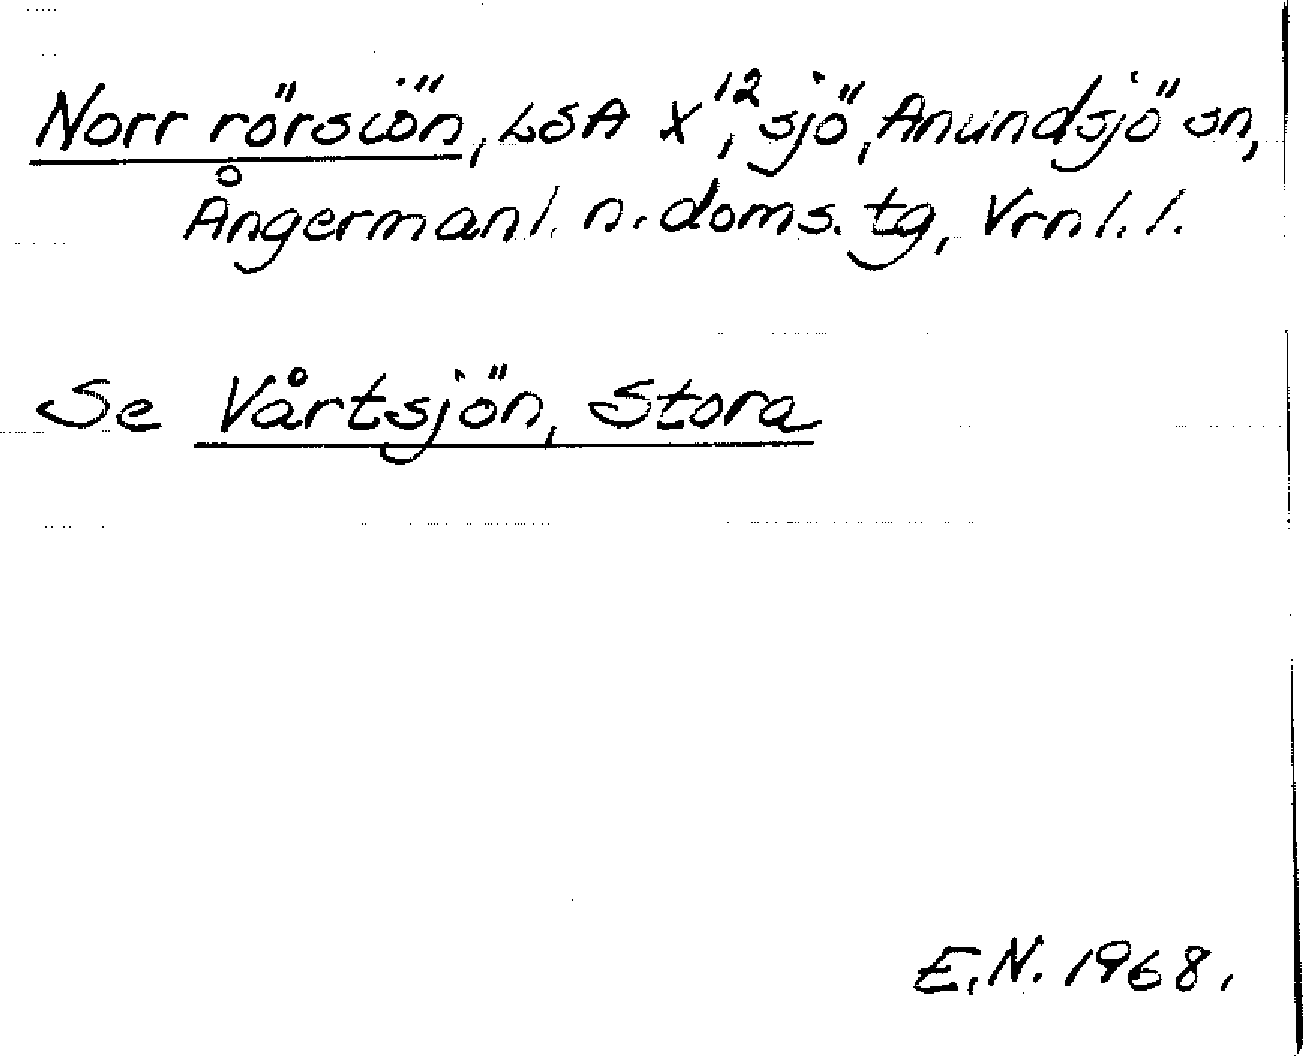 Norr rörsiön, LSA X¹², sjö, Anundsjö sn,
Ångermanl. n. doms. tg, Vrnl. l.
Se Vårtsjön, Stora
E.N. 1968.